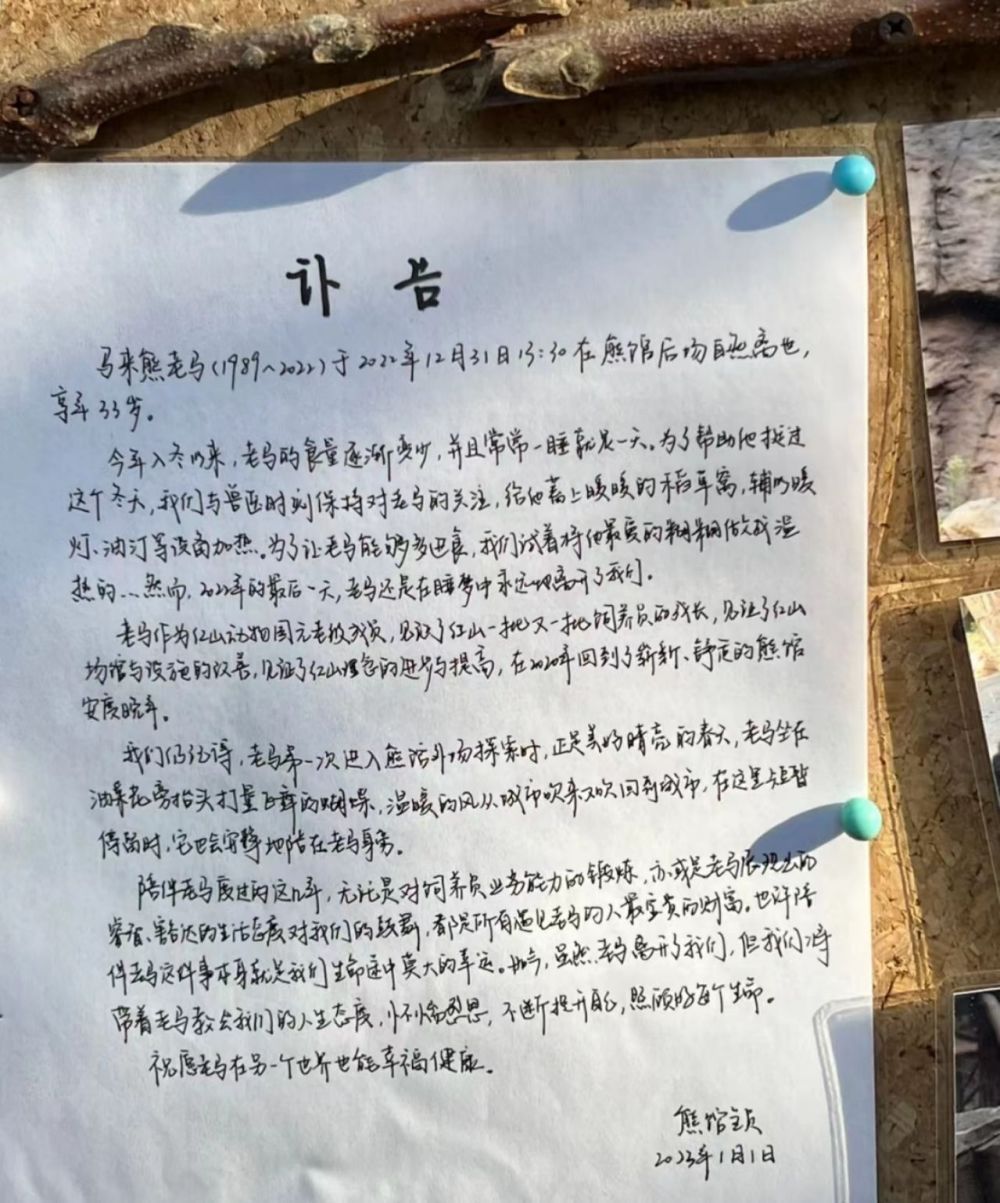 讣告
马来熊老马(1989~2022)于2022年12月31日13:30在熊馆后场自然离世，
享年33岁。
今年入冬以来，老马的食量逐渐变少，并且常常一睡就是一天。为了帮助他挺过
这个冬天，我们与兽医时刻保持对老马的关注，给他蓄上暖暖的稻草窝，辅以暖
灯、油汀等设备加热。为了让老马能够多进食，我们试着将他最爱的糊糊做成温
热的...然而，2022年的最后一天，老马还是在睡梦中永远地离开了我们。
老马作为红山动物园元老级成员，见证了红山一批又一批饲养员的成长，见证了红山
场馆与设施的改善，见证了红山理念的进步与提高，在2020年回到了崭新、舒适的熊馆
安度晚年。
我们仍记得，老马第一次进入熊馆外场探索时，正是美好晴亮的春天，老马坐在
油菜花旁抬头打量飞舞的蝴蝶，温暖的风从城市吹来又吹回到城市，在这里短暂
停留时，它也会安静地陪在老马身旁。
陪伴老马度过的这几年，无论是对饲养员业务能力的锻炼，亦或是老马展现出的
睿智、豁达的生活态度对我们的鼓舞，都是所有遇见老马的人最宝贵的财富。也许陪
伴老马这件事本身就是我们生命途中莫大的幸运。如今，虽然老马离开了我们，但我们将
带着老马教会我们的人生态度，心怀感恩，不断提升自己，照顾好每个生命。
祝愿老马在另一个世界也能幸福健康。
熊馆全员
2023年1月1日